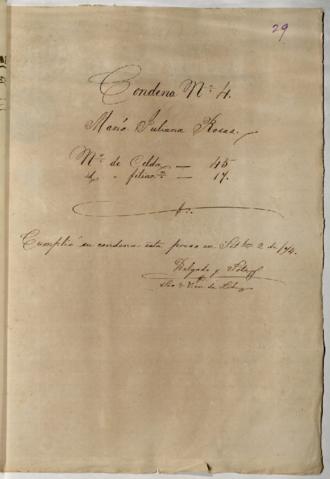 29
Condena Nº 4.
Maria Juliana Rosas.
Nº de Celda — 45
" " filiacn — 17.
Cumplió su condena este preso en Stbre 2 de 174.
Delgado y